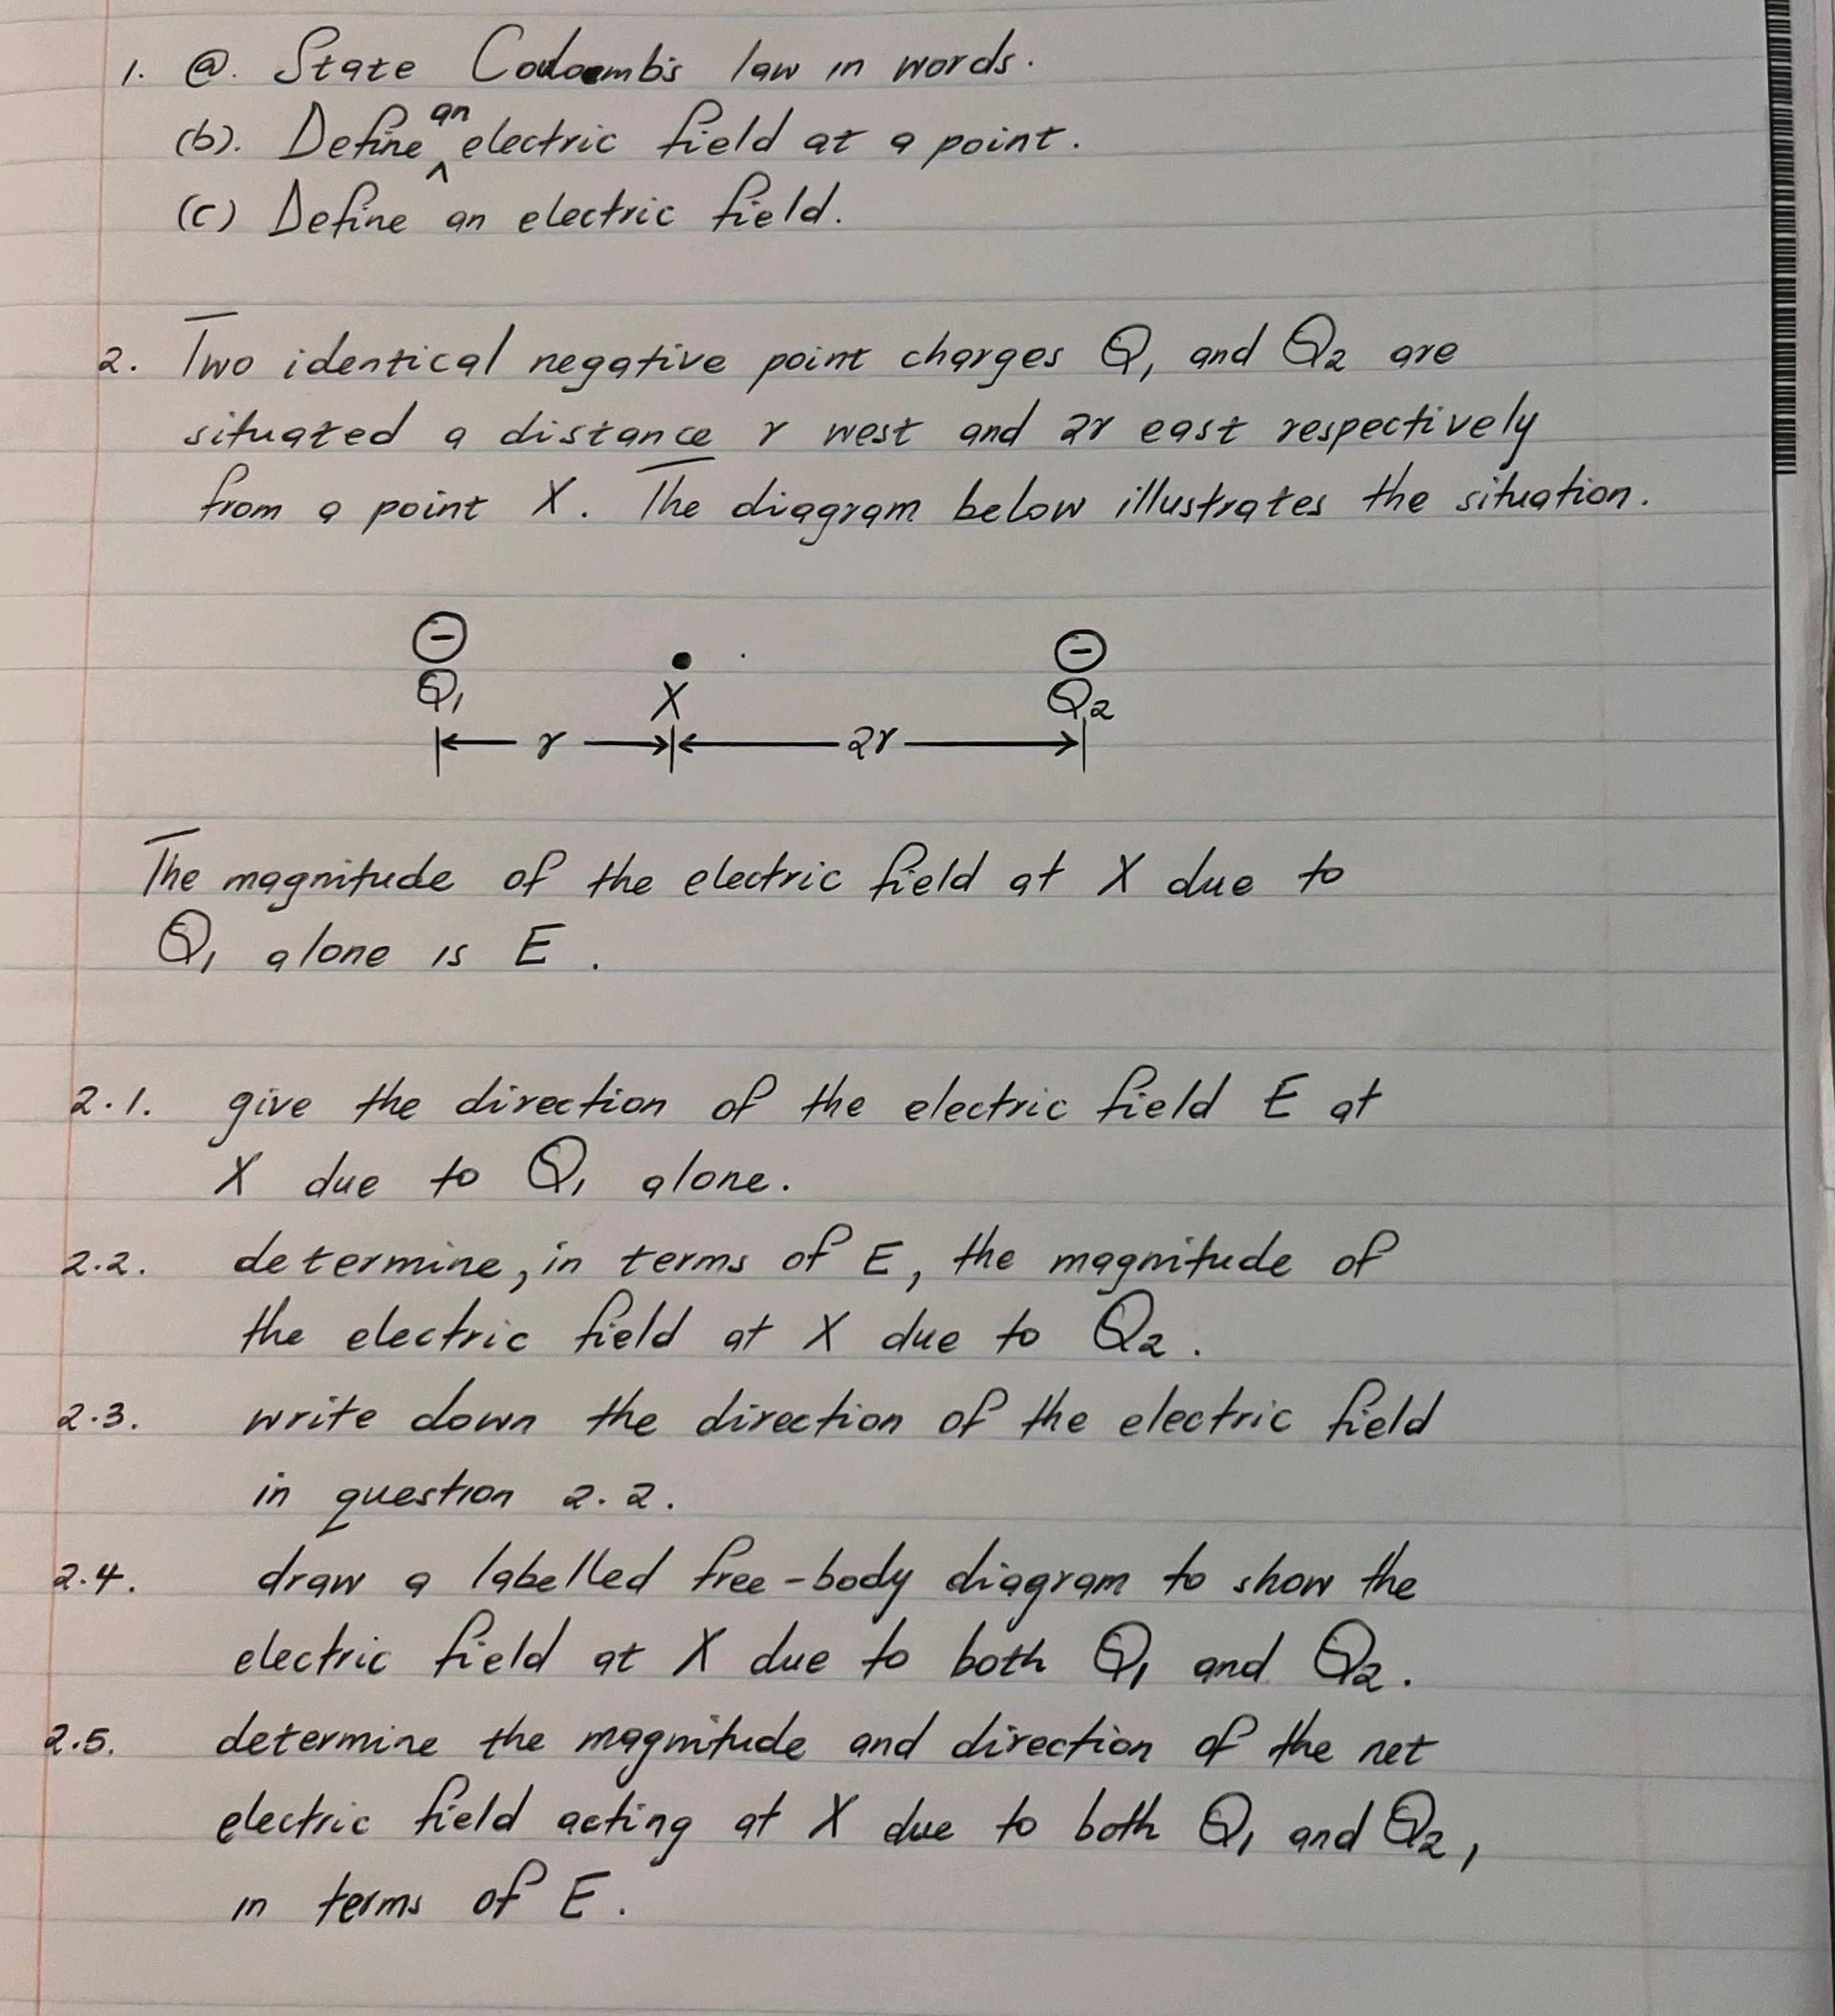 1. (a). State Coulomb's law in words.
(b). Define an electric field at a point.
(c) Define an electric field.
2. Two identical negative point charges Q1 and Q2 are
situated a distance r west and 2r east respectively
from a point X. The diagram below illustrates the situation.
- • -
Q1 X Q2
r 2r
The magnitude of the electric field at X due to
Q1 alone is E.
2.1. give the direction of the electric field E at
X due to Q1 alone.
2.2. determine, in terms of E, the magnitude of
the electric field at X due to Q2.
2.3. write down the direction of the electric field
in question 2.2.
2.4. draw a labelled free-body diagram to show the
electric field at X due to both Q1 and Q2.
2.5. determine the magnitude and direction of the net
electric field acting at X due to both Q1 and Q2,
in terms of E.